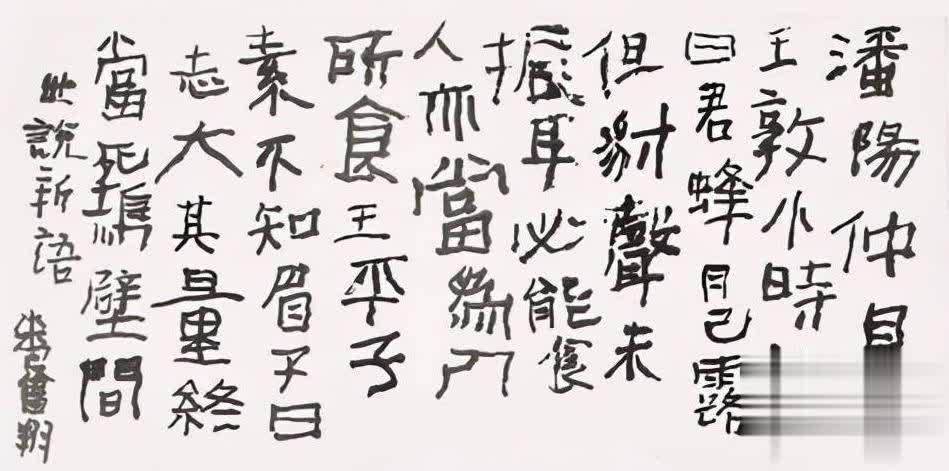 潘陽仲
王敦小時
曰君蜂目已露
但豺聲未
振耳必能食
人亦當為人
所食王平子
素不知眉子曰
志大其量終
當死塢壁間
世說新語